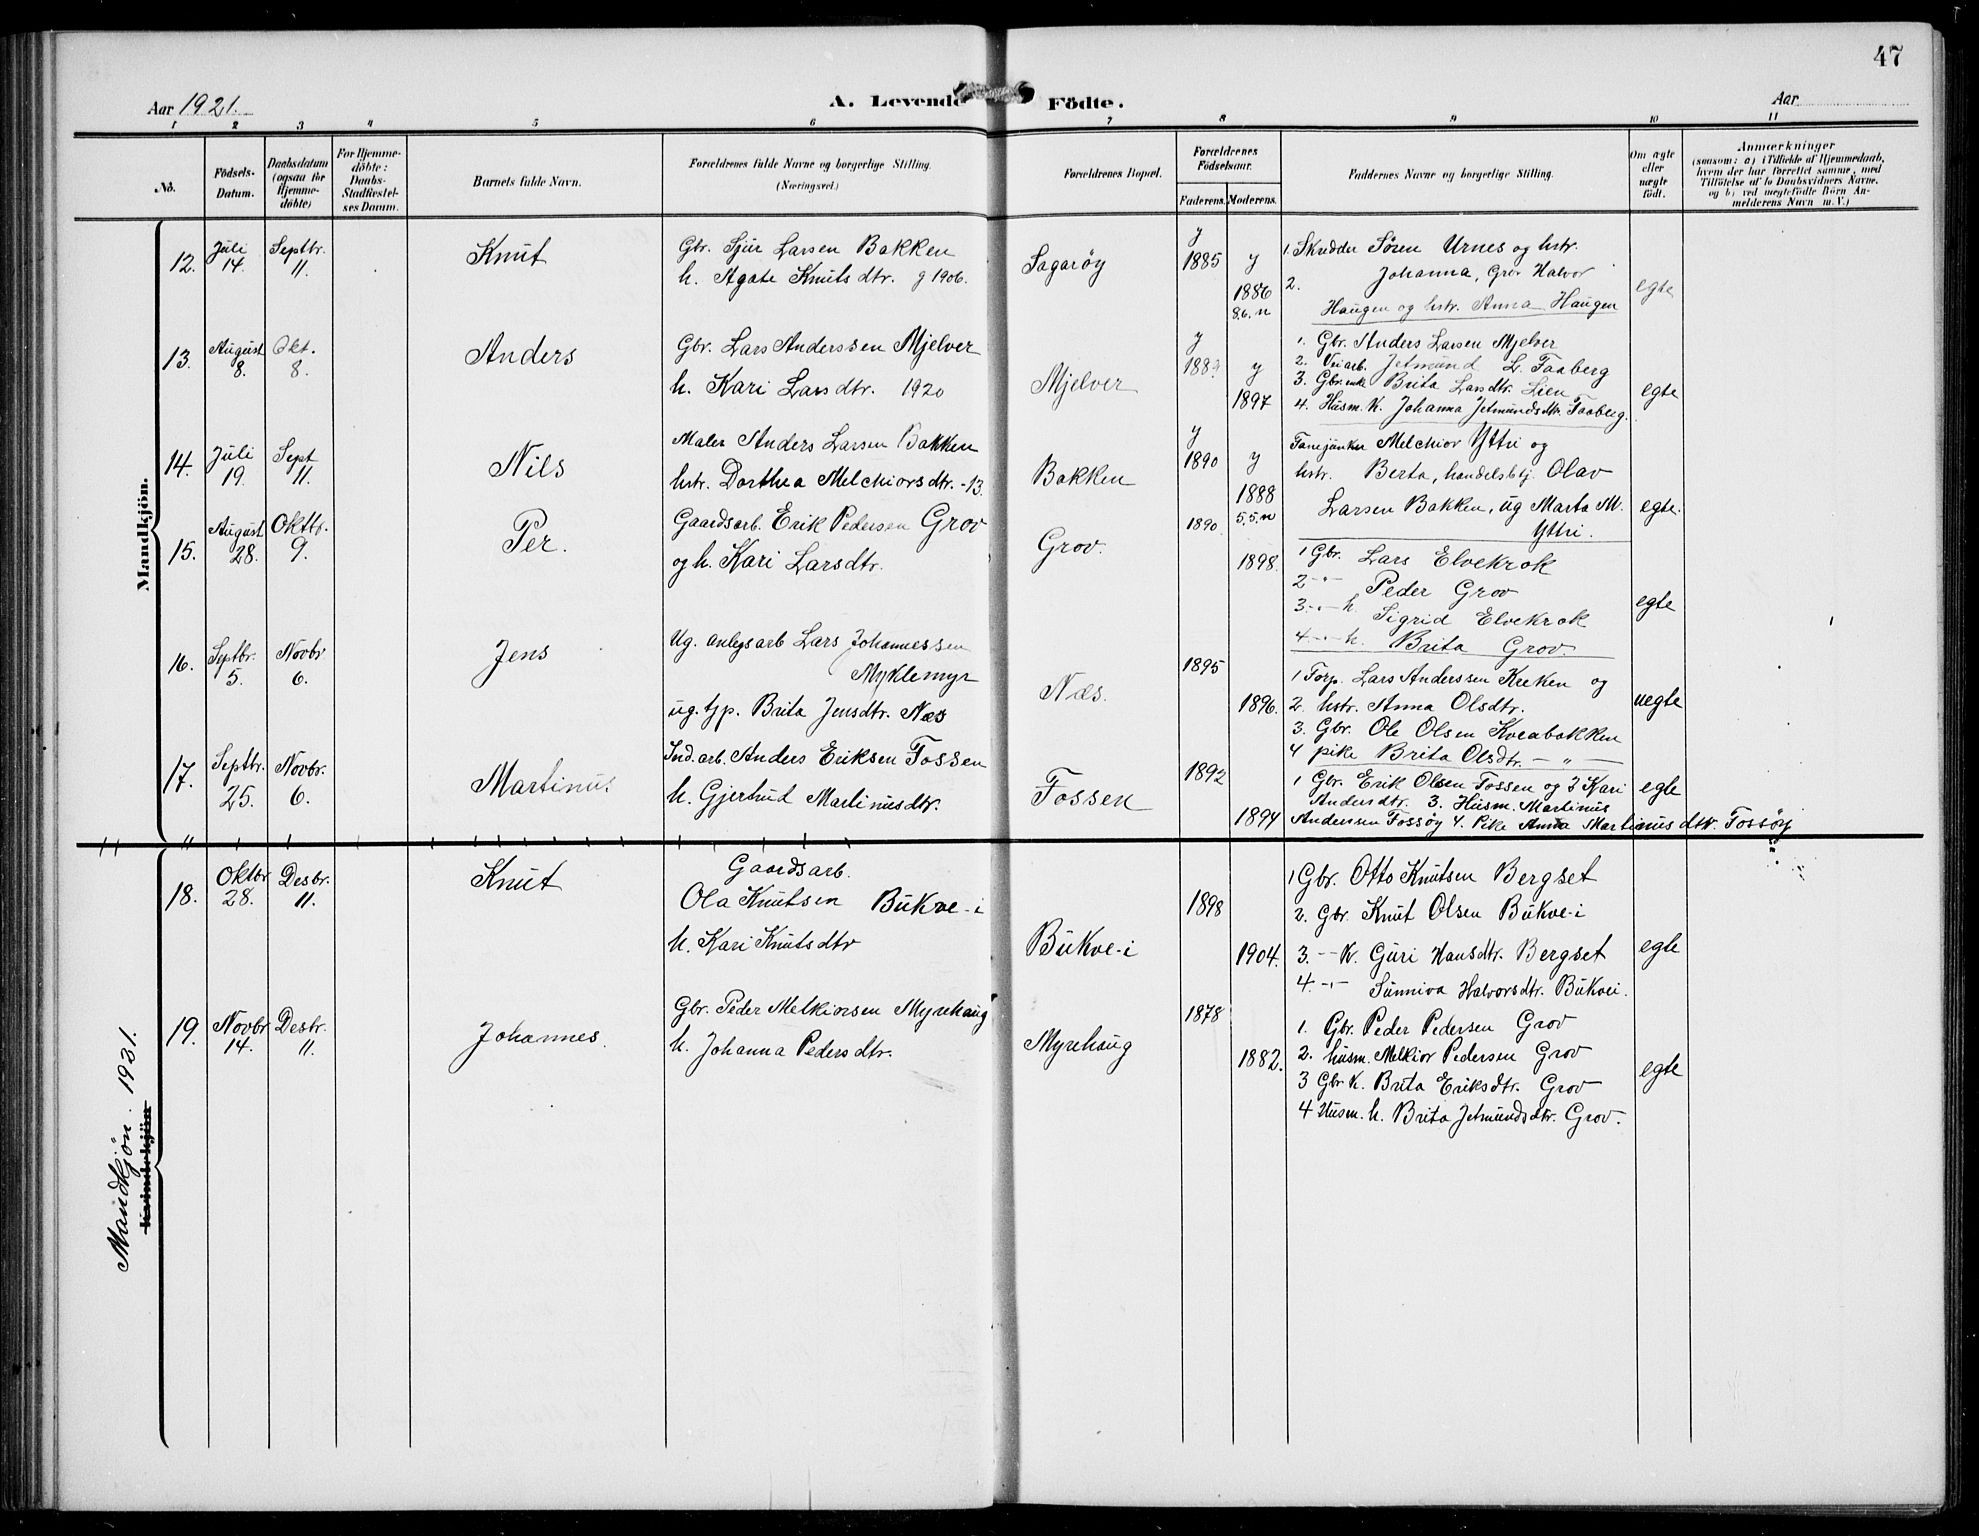 47
Aar 1921.
A. Levende Födte.
Aar
1 2 3 4 5 6 7 8 9 10 11
No.
Födsels-Datum.
Daabsdatum (ogsaa for Hjemme-döbte)
For Hjemme-döbte: Daabs-Stadfæstel-ses Datum.
Barnets fulde Navn.
Forældrenes fulde Navne og borgerlige Stilling.
(Næringsvei.)
Forældrenes Bopæl.
Forældrenes Födselsaar.
Faderens. Moderens.
Faddernes Navne og borgerlige Stilling.
Om ægte eller uægte födt.
Anmærkninger
(saasom: a) i Tilfælde af Hjemmedaab, hvem der har forrettet samme, med Tilföielse af to Daabsvidners Navne, og b) ved uægtefödte Börn An-melderens Navn m. V.)
Mandkjön.
12. Juli 14. Septbr. 11. Knut
Gbr. Sjur Larsen Bakken
h. Agate Knutsdtr. g 1906.
Sagarøy
y 1885 y 1886 8.6.n
1. Skrædder Sören Urnes og hstr.
Johanna, Gbr Halvor
2.
Haugen og hstr. Anna Haugen
egte
13. August 8. Okt. 8. Anders
Gbr. Lars Anderssen Mjelver
h. Kari Larsdtr. 1920
Mjelver
y 1889 y 1897
1. Gbr. Anders Larsen Mjelver
2. Veiarb. Jetmund L. Faaberg
3. Gbr.enk Brita Larsdtr. Lien
4. Husm. K. Johanna Jetmundsdtr. Faaberg.
egte
14. Juli 19. Sept 11. Nils
Maler Anders Larsen Bakken
hstr. Dorthea Melchiorsdtr. -13.
Bakken
y 1890 y 1888 5.5.n
Melchior Yttri og
hstr. Berta, handelsbtj. Olav
Larsen Bakken, ug Marta M.
Yttri.
egte.
15. August 28. Oktbr. 9. Per.
Gaardsarb. Erik Pedersen Grov
og h. Kari Larsdtr.
Grov.
1890 1898.
1 Gbr. Lars Elvekrok
2 -"- Peder Grov
3 -"- h. Sigrid Elvekrok
4 -"- h. Brita Grov.
egte
16. Septbr. 5. Novbr 6. Jens
Ug. anlegsarb Lars Johannessen
Myklemyr
ug. tjp. Brita Jensdtr. Næs
Næs.
1895 1896.
1 Forp. Lars Anderssen Kreken og
2. hstr. Anna Olsdtr.
3. Gbr. Ole Olsen Kveabakken
4 pike Brita Olsdtr. — " —
uegte
17. Septbr. 25. Novbr. 6. Martinus
Ind. arb. Anders Eriksen Fossen
h. Gjertrud Martinusdtr.
Fossen
1892 1894
1 Gbr. Erik Olsen Fossen og 2 Kari
Andersdtr. 3. Husm. Martinus
Andersen Fossøy 4. Pike Anna Martinusdtr. Fossøy
egte
Mandkjøn. 1921.
Kvindekjön
18. Oktbr 28. Desbr. 11. Knut
Gaardsarb.
Ola Knutsen Bukve-i
h. Kari Knutsdtr
Bukve-i
1898 1904.
1 Gbr. Otto Knutsen Bergset
2. Gbr Knut Olsen Bukve-i
3. -"- K. Guri Hansdtr. Bergset
4. -"- Sunniva Halvorsdtr. Bukvei.
egte
19. Novbr 14. Desbr. 11. Johannes.
Gbr. Peder Melkiorsen Myrehaug
h. Johanna Pedersdtr.
Myrehaug
1878 1882.
1. Gbr. Peder Pedersen Grov
2. husm. Melkior Pedersen Grov
3 Gbr K. Brita Eriksdtr. Grov
4 Husm. h. Brita Jetmundsdtr. Grov.
egte